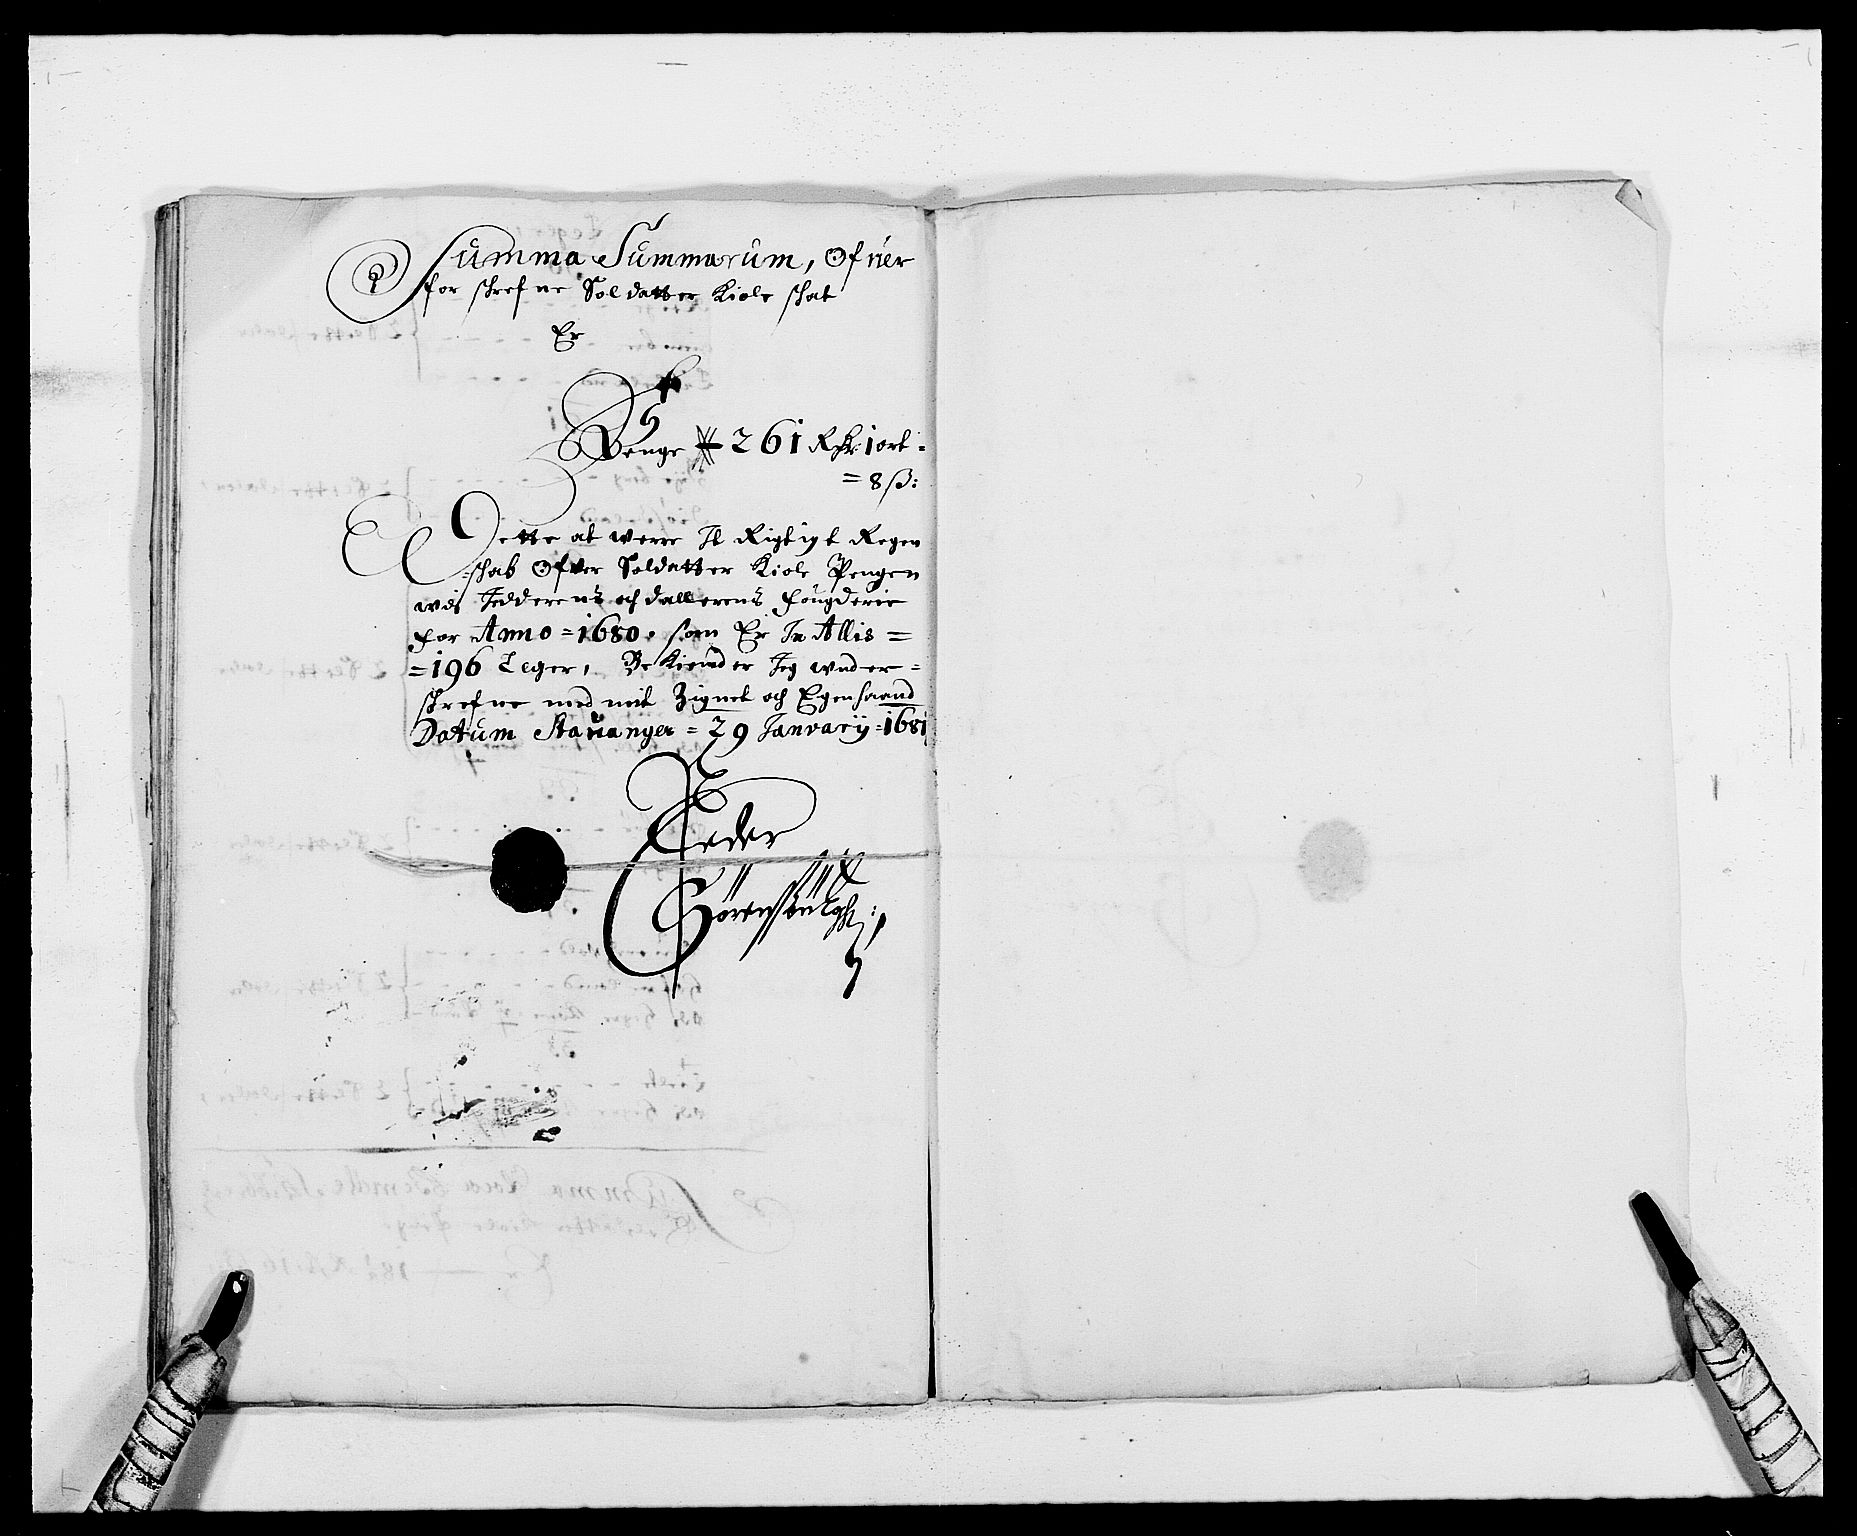 Summa Summarum, Ofuer
for schrefne Soldatter Kiole schat
Er
Penge 261 Rdr 1 ort =
= 8 ß:
Dette at werre It Rigtigt Regen
:schab Ofwer Soldatter Kiole Pengen
wdj Jedderens och dallerens fougderie
for Anno = 1680. som Er In Allis =
= 196 Leger, Bekiender Jeg wnder =
schrefne med mit Zignet och Egenhaand
Datum Stauanger = 29 January = 1681
Peder